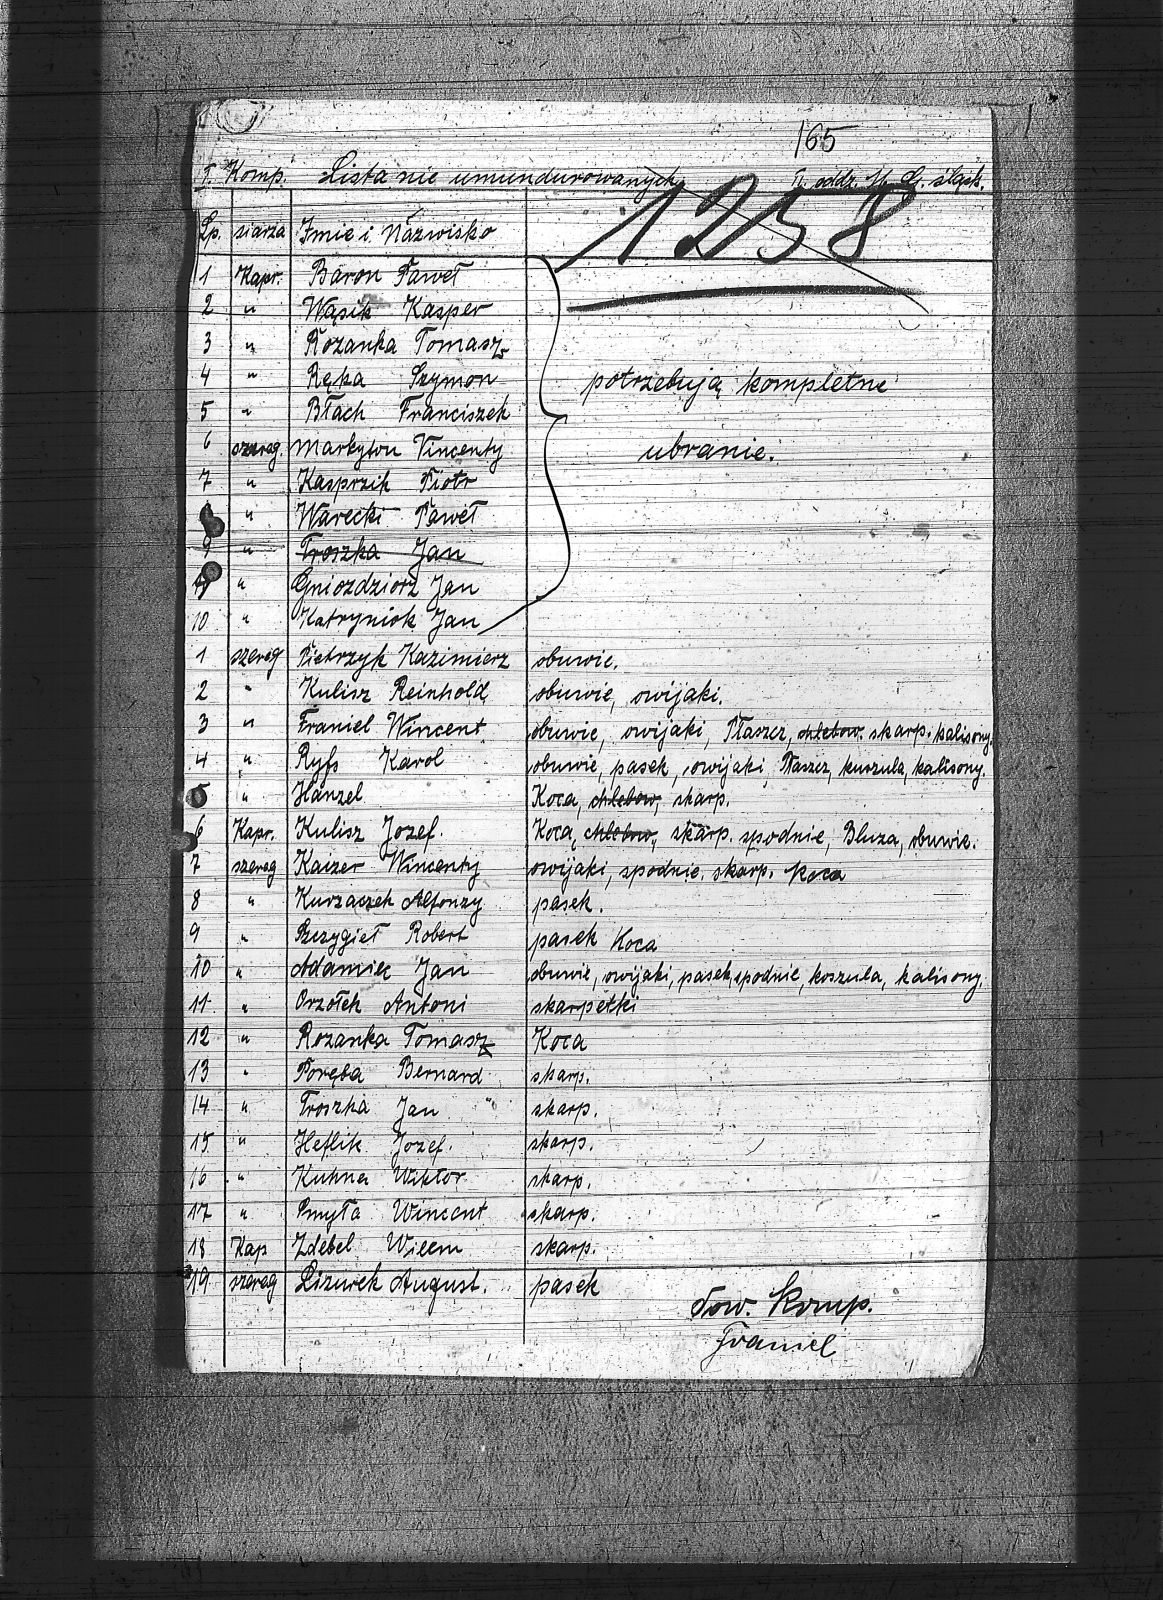 165
I. Komp. Lista nie umundurowanych II. oddz. śląsk.
1258
Lp. siarża Imie i Nazwisko
1 Kapr. Baron Paweł
2 " Wąsik Kasper
3 " Rozanka Tomasz
4 " Ręka Szymon
potrzebują kompletne
5 " Błach Franciszek
6 szereg. Markyton Vincenty
ubranie.
7 " Kasprzik Piotr
" Warecki Paweł
9 " Troszka Jan
" Gniozdziorz Jan
10 " Katryniok Jan
1 szereg Pietrzyk Kazimierz obuwie.
2 " Kulisz Reinhold obuwie, owijaki.
3 " Franiel Wincent obuwie, owijaki, Płaszcz, chlebow. skarp. kalisony.
4 " Ryfs Karol obuwie, pasek, owijaki, Płaszcz, kuszula, kalisony.
5 " Hanzel Koca, chlebow, skarp.
6 Kapr. Kulisz Jozef. Koca, chlebow, skarp. spodnie, Bluza, obuwie.
7 szereg Kaczer Wincenty owijaki, spodnie. skarp. Koca
8 " Kurzaczek Alfonzy pasek.
9 " Szczygieł Robert pasek Koca
10 " Adamiec Jan obuwie, owijaki, pasek, spodnie, koszula, kalisony.
11 " Orzołek Antoni skarpetki
12 " Rozanka Tomasz Koca
13 " Poręba Bernard skarp.
14 " Troszka Jan skarp.
15 " Heflik Jozef. skarp.
16 " Kuhna Wiktor skarp.
17 " Smyła Wincent skarp.
18 Kap Zdebel Wilem skarp.
19 szereg Lizurek August. pasek
Dow. Komp.
Franiel